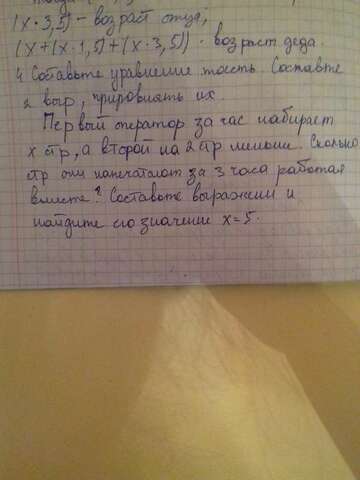 (х · 3,5) - возраст отца,
(х + (х · 1,5) + (х · 3,5)) - возраст деда.
4 Составьте уравнение. Составьте
2 выр, прировнять их.
Первый оператор за час набирает
х стр, а второй на 2 стр меньше. Сколько
стр они напечатают за 3 часа работая
вместе? Составьте выражени и
найдите его значение х = 5.